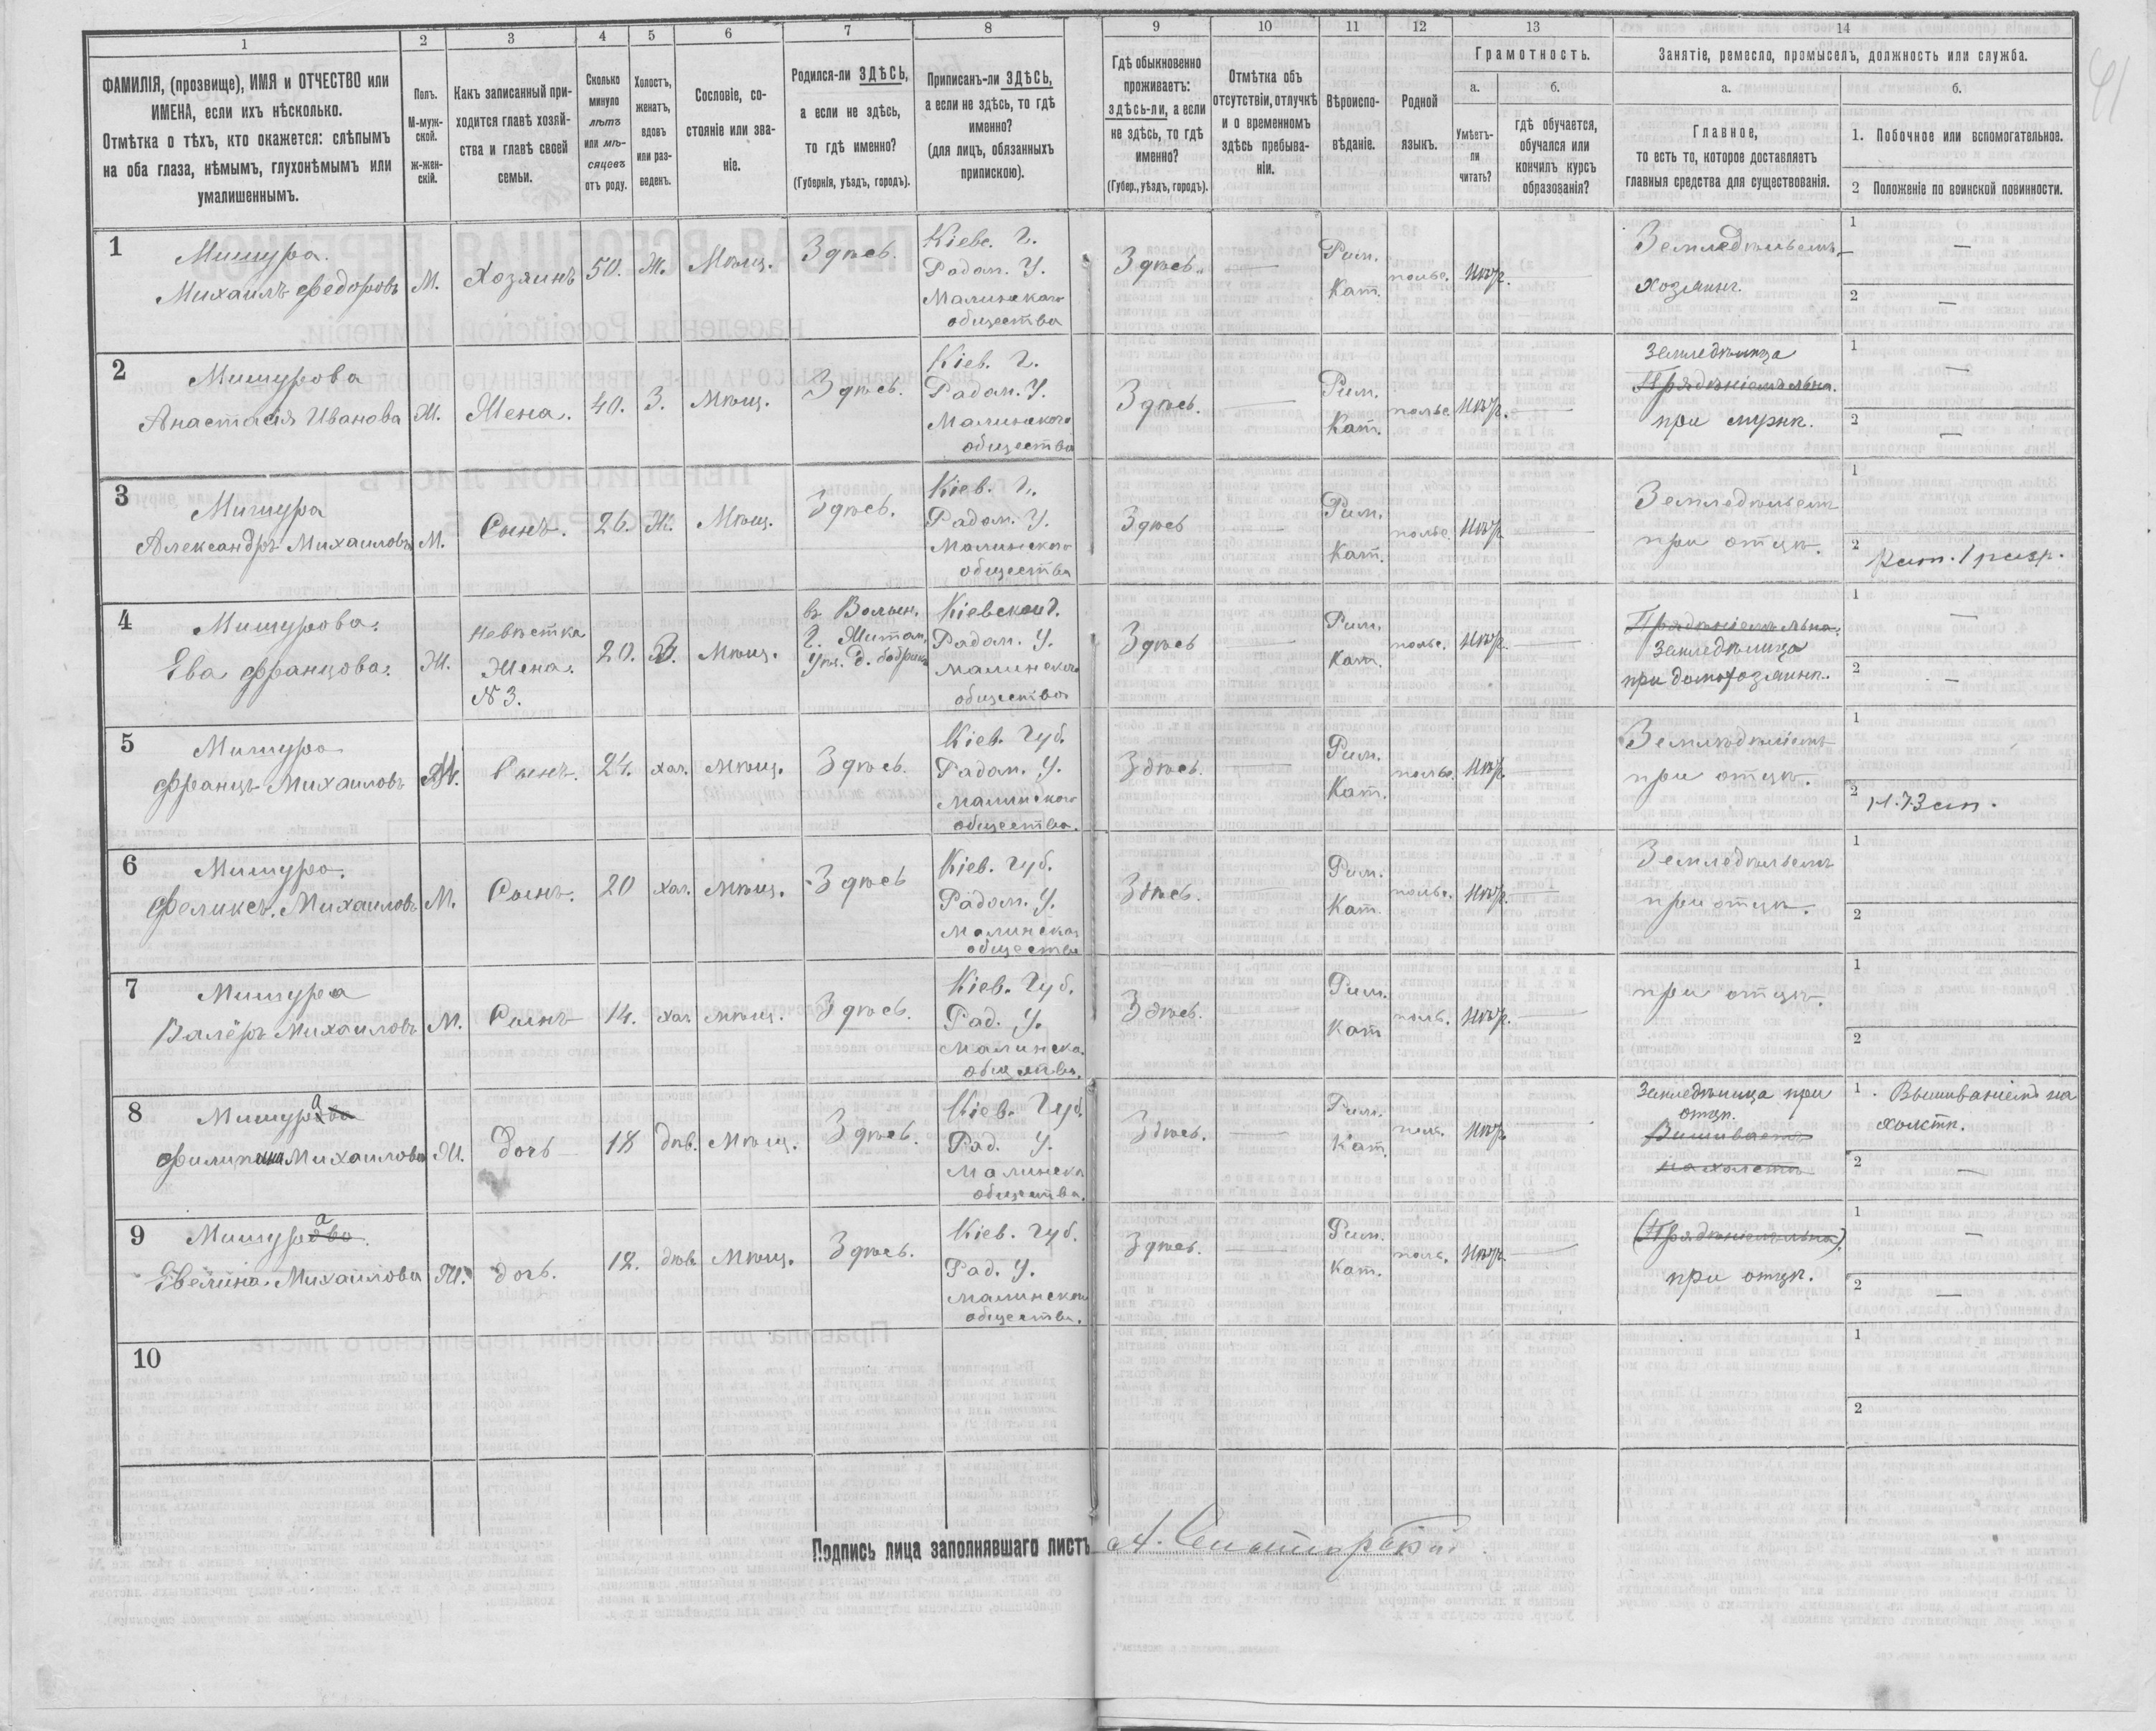 41
1 2 3 4 5 6 7 8 9 10 11 12 13 14
ФАМИЛІЯ, (прозвище), ИМЯ и ОТЧЕСТВО или
ИМЕНА, если ихъ нѣсколько.
Отмѣтка о тѣхъ, кто окажется: слѣпымъ
на оба глаза, нѣмымъ, глухонѣмымъ или
умалишеннымъ.
Полъ.
М-муж-
ской.
ж-жен-
скій.
Какъ записанный при-
ходится главѣ хозяй-
ства и главѣ своей
семьи.
Сколько
минуло
лѣтъ
или мѣ-
сяцевъ
отъ роду.
Холостъ,
женатъ,
вдовъ
или раз-
веденъ.
Сословіе, со-
стояніе или зва-
ніе.
Родился-ли ЗДѢСЬ,
а если не здѣсь,
то гдѣ именно?
(Губернія, уѣздъ, городъ).
Приписанъ-ли ЗДѢСЬ,
а если не здѣсь, то гдѣ
именно?
(для лицъ, обязанныхъ
припискою).
Гдѣ обыкновенно
проживаетъ:
здѣсь-ли, а если
не здѣсь, то гдѣ
именно?
(Губер., уѣздъ, городъ).
Отмѣтка объ
отсутствіи, отлучкѣ
и о временномъ
здѣсь пребыва-
ніи.
Вѣроиспо-
вѣданіе.
Родной
языкъ.
Грамотность.
а.
Умѣетъ-
ли
читать?
б.
гдѣ обучается,
обучался или
кончилъ курсъ
образованія?
Занятіе, ремесло, промыселъ, должность или служба.
а.
Главное,
то есть то, которое доставляетъ
главныя средства для существованія.
б.
1. Побочное или вспомогательное.
2 Положеніе по воинской повинности.
1
Мишура.
Михаилъ Федоровъ
М.
Хозяинъ
50.
Ж.
Мѣщ.
Здѣсь.
Кіевс. Г.
Радом. У.
Малинскаго
общества
Здѣсь.
Рим.
Кат.
польс.
Нѣтъ.
Земледѣлецъ,
хозяинъ.
1 —
2 —
2
Мишурова
Анастасія Иванова
Ж.
Жена.
40.
З.
Мѣщ.
Здѣсь.
Кіев. Г.
Радом. У.
Малинскаго
общества
Здѣсь.
Рим.
Кат.
польс.
Нѣтъ.
Земледѣлица
при мужѣ.
1 —
2 —
3
Мишура
Александръ Михаиловъ
М.
Сынъ.
26.
Ж.
Мѣщ.
Здѣсь.
Кіев. Г.
Радом. У.
Малинскаго
общества
Здѣсь
Рим.
Кат.
польс.
Нѣтъ
Земледѣлецъ
при отцѣ.
1
2 Рат. 1 разр.
4
Мишурова.
Ева Францова.
Ж.
Невѣстка
Жена.
№ 3.
20.
З.
Мѣщ.
въ Волын.
Г. Житом.
Уѣз. д.
Кіевской г.
Радом. У.
Малинскаго
общества
Здѣсь
Рим.
Кат.
польс.
Нѣтъ.
Земледѣлица
при домохозяинѣ.
1 —
2 —
5
Мишура
Францъ Михаиловъ
М.
Сынъ.
24.
хол.
Мѣщ.
Здѣсь.
Кіев. Губ.
Радом. У.
Малинскаго
общества.
Здѣсь.
Рим.
Кат.
польс.
Нѣтъ.
Земледѣлецъ
при отцѣ.
1
2
6
Мишура.
Феликсъ Михаиловъ
М.
Сынъ.
20
хол.
Мѣщ.
Здѣсь
Кіев. Губ.
Радом. У.
Малинска
общества
Здѣсь.
Рим.
Кат.
польс.
Нѣтъ.
Земледѣлецъ
при отцѣ.
1
2
7
Мишура
Валёръ Михаиловъ
М.
Сынъ
14.
хол.
Мѣщ.
Здѣсь.
Кіев. Губ.
Рад. У.
Малинска.
общества.
Здѣсь.
Рим.
Кат
польс.
Нѣтъ.
при отцѣ.
1
2
8
Мишура
Филипина Михаилова
Ж.
дочь
18
дѣв.
Мѣщ.
Здѣсь.
Кіев. Губ.
Рад. У.
Малинска
общества.
Здѣсь.
Рим.
Кат.
польс.
Нѣтъ.
Земледѣлица при
отцѣ.
Вишиваетъ
на холстѣ
1. Вышиваніемъ на
холстѣ.
2 —
9
Мишура
Евелина Михаилова
Ж.
дочь.
12.
дѣв.
Мѣщ.
Здѣсь.
Кіев. Губ.
Рад. У.
Малинской
общества.
Здѣсь.
Рим.
Кат.
польс.
Нѣтъ.
при отцѣ.
1 —
2 —
10
1
2
Подпись лица заполнявшаго листъ